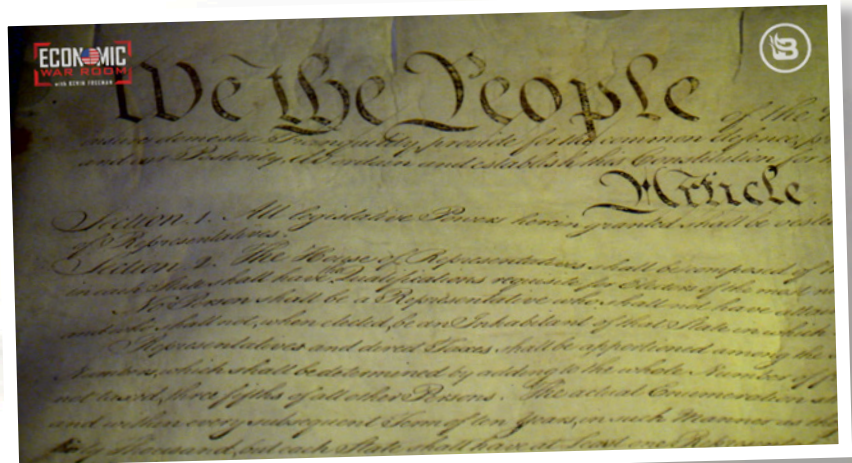 ECONOMIC
WAR ROOM
with KEVIN FREEMAN
B
We the People of the
insure domestic Tranquility, provide for the common defence,
and our Posterity, do ordain and establish this Constitution for
Article.
Section. 1. All legislative Powers herein granted shall be
of Representatives.
Section. 2. The House of Representatives shall be composed of
in each State shall have the Qualifications requisite for Electors of the most
No Person shall be a Representative who shall not have
and who shall not, when elected, be an Inhabitant of that State in which
Representatives and direct Taxes shall be apportioned among the
Numbers, which shall be determined by adding to the whole Number of
not taxed, three fifths of all other Persons. The actual Enumeration
and within every subsequent Term of ten Years, in such Manner as
Thousand, but each State shall have at Least one